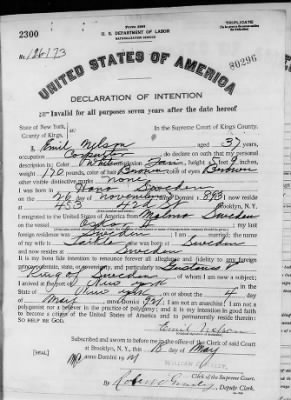 Form 2203
TRIPLICATE
2300
U. S. DEPARTMENT OF LABOR
NATURALIZATION SERVICE
No. 126173
80296
UNITED STATES OF AMERICA
DECLARATION OF INTENTION
Invalid for all purposes seven years after the date hereof
State of New York,
County of Kings,
In the Supreme Court of Kings County.
I, Emil Nelson, aged 37 years,
occupation Carpenter, do declare on oath that my personal
description is: Color White, complexion Fair, height 5 feet 9 inches,
weight 170 pounds, color of hair Brown, color of eyes Brown
other visible distinctive marks none
I was born in Sweden
on the 26 day of November, anno Domini 1893; I now reside
at 453 42d St, Brooklyn, N. Y.
I emigrated to the United States of America from Malmo Sweden
on the vessel; my last
foreign residence was Sweden; I am married; the name
of my wife is; she was born in Sweden
and now resides at Sweden
It is my bona fide intention to renounce forever all allegiance and fidelity to any foreign
prince, potentate, state, or sovereignty, and particularly to Gustavus V
King of Sweden, of whom I am now a subject;
I arrived at the port of New York, in the
State of New York, on or about the 4 day
of May, anno Domini; I am not an anarchist; I am not a
polygamist nor a believer in the practice of polygamy; and it is my intention in good faith
to become a citizen of the United States of America and to permanently reside therein:
SO HELP ME GOD.
Emil Nelson
Subscribed and sworn to before me in the office of the Clerk of said Court
at Brooklyn, N. Y., this 18 day of May
[SEAL] anno Domini 19
WILLIAM
Clerk of the Supreme Court.
By Robert, Deputy Clerk.